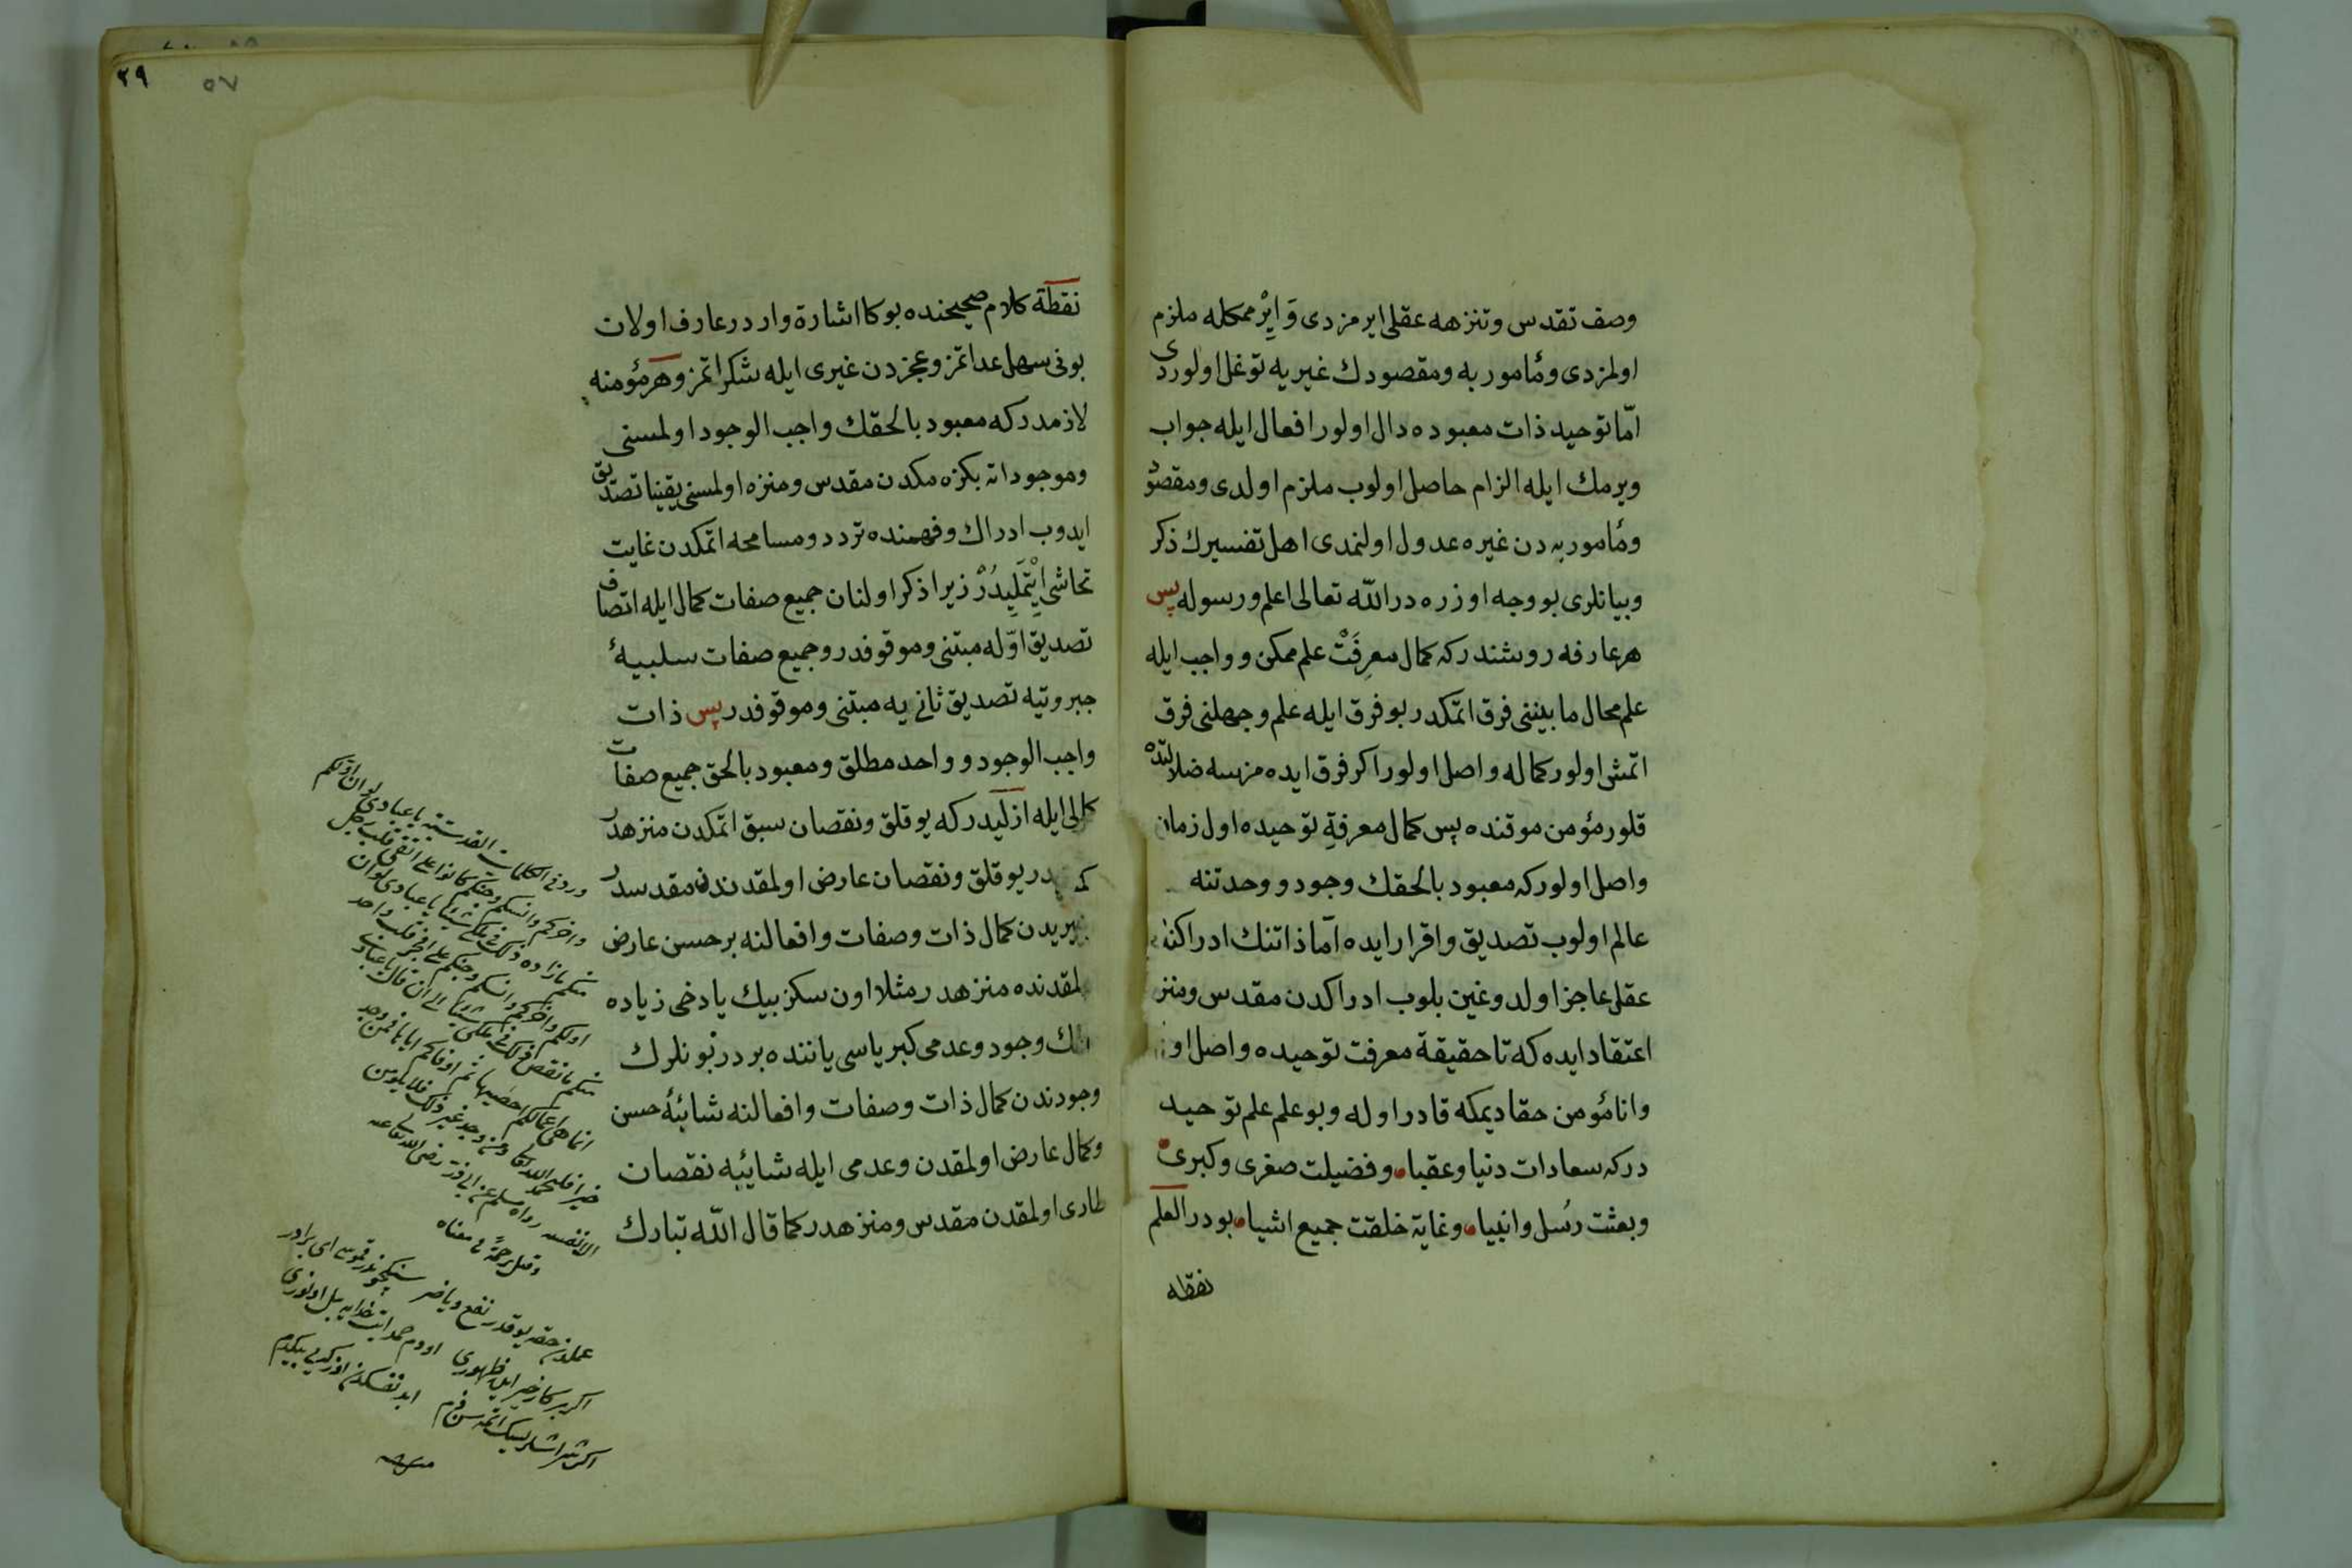 وصف تقدس وتنزهه عقلی ایرمزدی وَایِرْممكله ملزم
اولمزدی ومٔامور به ومقصودك غیریه توغل اولوردی
امّا توحید ذات معبوده دال اولور افعال ایله جواب
ویرمك ایله الزام حاصل اولوب ملزم اولدی ومقصود
ومٔامور به دن غیره عدول اولنمدی اهل تفسیرك ذكر
وبیانلری بو وجه اوزره در الله تعالی اعلم ورسوله پس
هر عارفه روشندر كه كمال معرِفَتْ علم ممكن و واجب ایله
علم محال مابیننی فرق اتمكدر بو فرق ایله علم وجهلنی فرق
اتمش اولور كماله واصل اولور اكر فرق ایده مزسه ضلالتده
قلور مؤمن موقنده پس كمال معرفةِ توحیده اول زمان
واصل اولور كه معبود بالحقك وجود و وحدتنه
عالم اولوب تصدیق واقرار ایده امّا ذاتنك ادراكنه
عقلی عاجز اولدوغین بلوب ادراكدن مقدس ومنزه
اعتقاد ایده كه تا حقیقة معرفت توحیده واصل اولا
وانا مٔومن حقا دیمكه قادر اوله وبو علم علم توحید
در كه سعادات دنیا وعقبا وفضیلت صغری وكبری
وبعثت رُسل وانبیا وغایة خلقت جمیع اشیا بودر العلم
نقطه
٢٩
٥٧
نقطة كلام صحیحنده بوكا اشارة واردر عارف اولان
بونی سهل عد اتمز وعجزدن غیری ایله شكر اتمز وهر مؤمنه
لازمدر كه معبود بالحقك واجب الوجود اولمسنی
وموجوداته بكزه مكدن مقدس ومنزه اولمسنی یقینا تصدیق
ایدوب ادراك وفهمنده تردد ومسامحه اتمكدن غایت
تحاشی اِیْتْمَلِیدُرْ زیرا ذكر اولنان جمیع صفات كمال ایله اتصاف
تصدیق اوّله مبتنی وموقوفدر وجمیع صفات سلبیهٔ
جبروتیه تصدیق ثانی یه مبتنی وموقوفدر پس ذات
واجب الوجود و واحد مطلق ومعبود بالحق جمیع صفات
كمالی ایله ازلیدر كه یوقلق ونقصان سبق اتمكدن منزهدر
در یوقلق ونقصان عارض اولمقدندن مقدسدر
كمال ذات وصفات وافعالنه بر حسن عارض
اولمقدنده منزهدر مثلا اون سكز بیك یا دخی زیاده
وجود وعدمی كبریاسی یاننده بردر بونلرك
وجودندن كمال ذات وصفات وافعالنه شائبهٔ حسن
وكمال عارض اولمقدن وعدمی ایله شائبه نقصان
طاری اولمقدن مقدس ومنزهدر كما قال الله تبارك
ورد فی الكلمات القدسیة یا عبادی لو ان اولكم
واخركم وانسكم وجنكم كانوا علی اتقی قلب رجل
منكم ما زاد ذلك فی ملكی شیئا یا عبادی لو ان
اولكم واخركم وانسكم وجنكم علی افجر قلب واحد
منكم ما نقص ذلك فی ملكی شیئا الی ان قال یا عبادی
انما هی اعمالكم احصیها ثم اوفاكم ایاها فمن وجد
خیرا فلیحمد الله تعالی ومن وجد غیر ذلك فلا یلومن
الا نفسه رواه مسلم عن ابی ذر رضی الله تعالی عنه
وقیل ترجمةً فی معناه